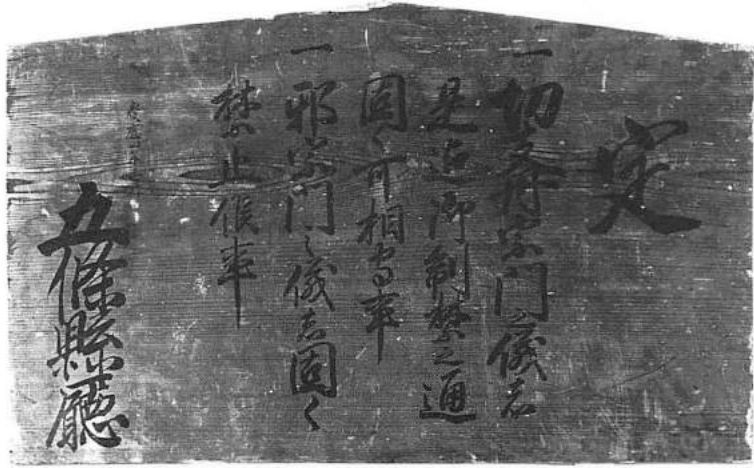 定
一切支丹宗門之儀者
是迄御制禁之通
固ク可相守事
一邪宗門之儀者固ク
禁止候事
慶應四年
五條縣廳